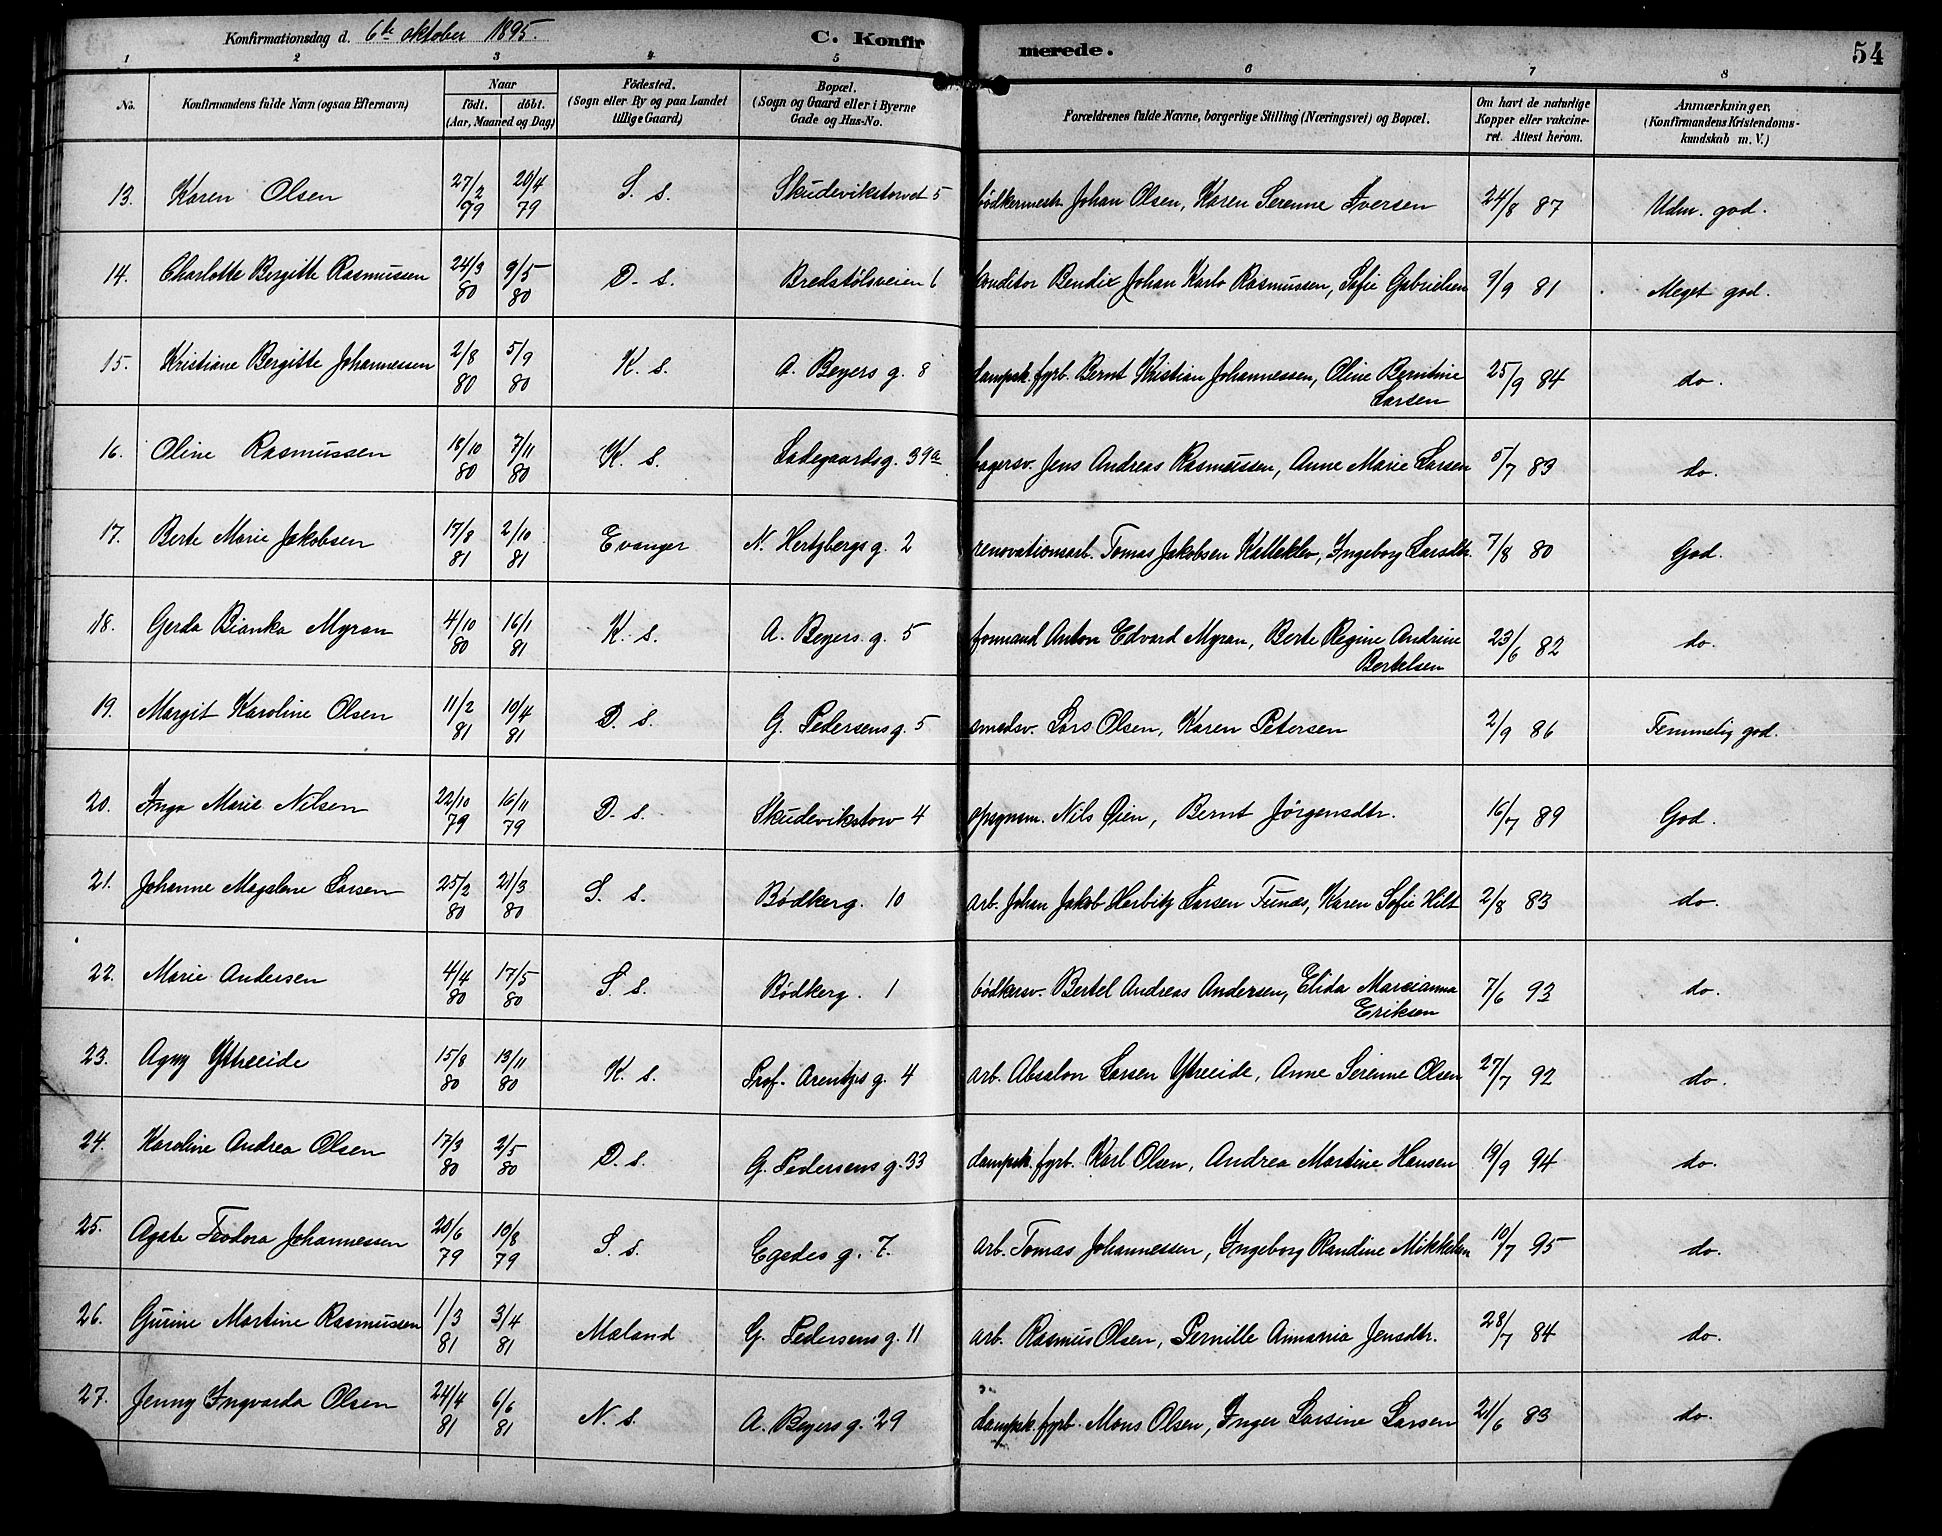 Konfirmationsdag d. 6te oktober 1895.
C. Konfirmerede.
54
1 2 3 4 5 6 7 8
No. Konfirmandens fulde Navn (ogsaa Efternavn) Naar födt. döbt. (Aar, Maaned og Dag) Födested. (Sogn eller By og paa Landet tillige Gaard) Bopæl. (Sogn og Gaard eller i Byerne Gade og Hus-No. Forældrenes fulde Navne, borgerlige Stilling (Næringsvei) og Bopæl. Om havt de naturlige Kopper eller vakcineret. Attest herom. Anmærkninger. (Konfirmandens Kristendomskundskab m. V.)
13. Karen Olsen 27/2 79 20/4 79 S. s. Skudevikstorvet 5 bödkermestr. Johan Olsen, Karen Serenne Iversen 24/8 87 Udm. god.
14. Charlotte Bergitte Rasmussen 24/3 80 9/5 80 D. s. Bredstølsveien 6 konditor Bendix Johan Karlo Rasmussen, Sofie Gabrielsen 9/9 81 Meget god.
15. Kristiane Bergitte Johannessen 2/8 80 5/9 80 K. s. A. Beyers g. 8 dampsk. fyrb. Bernt Kristian Johannessen, Oline Berntine Larsen 25/9 84 do.
16. Oline Rasmussen 18/10 80 7/11 80 K. s. Ladegaardsg. 39a bagersv. Jens Andreas Rasmussen, Anne Marie Larsen 5/7 83 do.
17. Berte Marie Jakobsen 17/8 81 2/10 81 Evanger N. Hertzbergs g. 2 renovationsarb. Tomas Jakobsen Kalleklev, Ingeborg Larsdtr. 7/8 80 God.
18. Gerda Bianka Myran 4/10 80 16/1 81 K. s. A. Beyers g. 5 formand Anton Edvard Myran, Berte Regine Andrine Bertelsen 23/6 82 do.
19. Margit Karoline Olsen 11/2 81 10/4 81 D. s. G. Pedersens g. 5 smedsv. Lars Olsen, Karen Petersen 2/9 86 Temmelig god.
20. Inga Marie Nilsen 22/10 79 16/11 79 D. s. Skudevikstorv 4 opsynsm. Nils Øien, Bernt Jörgensdtr. 16/7 89 God.
21. Johanne Magdlene Larsen 25/2 80 21/3 80 S. s. Bødkerg. 10 arb. Johan Jakob Herbitz Larsen Funæs, Karen Sofie Hilt 2/8 83 do.
22. Marie Andersen 4/4 80 17/5 80 S. s. Bødkerg. 1 bödkersv. Bertel Andreas Andersen, Elida Marcianna Eriksen 7/6 93 do.
23. Agny Ytreeide 15/8 80 13/11 80 K. s. Prof. Arentzis g. 4 arb. Absalon Larsen Ytreeide, Anne Serenne Olsen 27/7 92 do.
24. Karoline Andrea Olsen 17/3 80 2/5 80 D. s. G. Pedersens g. 33 dampsk. fyrb. Karl Olsen, Andrea Martine Hansen 19/9 94 do.
25. Agate Feodora Johannessen 20/6 79 10/8 79 S. s. Egedes g. 7. arb. Tomas Johannessen, Ingeborg Randine Mikkelsen 10/7 95 do.
26. Gurine Martine Rasmussen 1/3 81 3/4 81 Mæland G. Pedersens g. 11 arb. Rasmus Olsen, Pernille Annania Jensdtr. 28/7 84 do.
27. Jenny Ingvarda Olsen 24/4 81 6/6 81 N. s. A. Beyers g. 29 dampsk. fyrb. Mons Olsen, Inger Larsine Larsen 21/6 83 do.